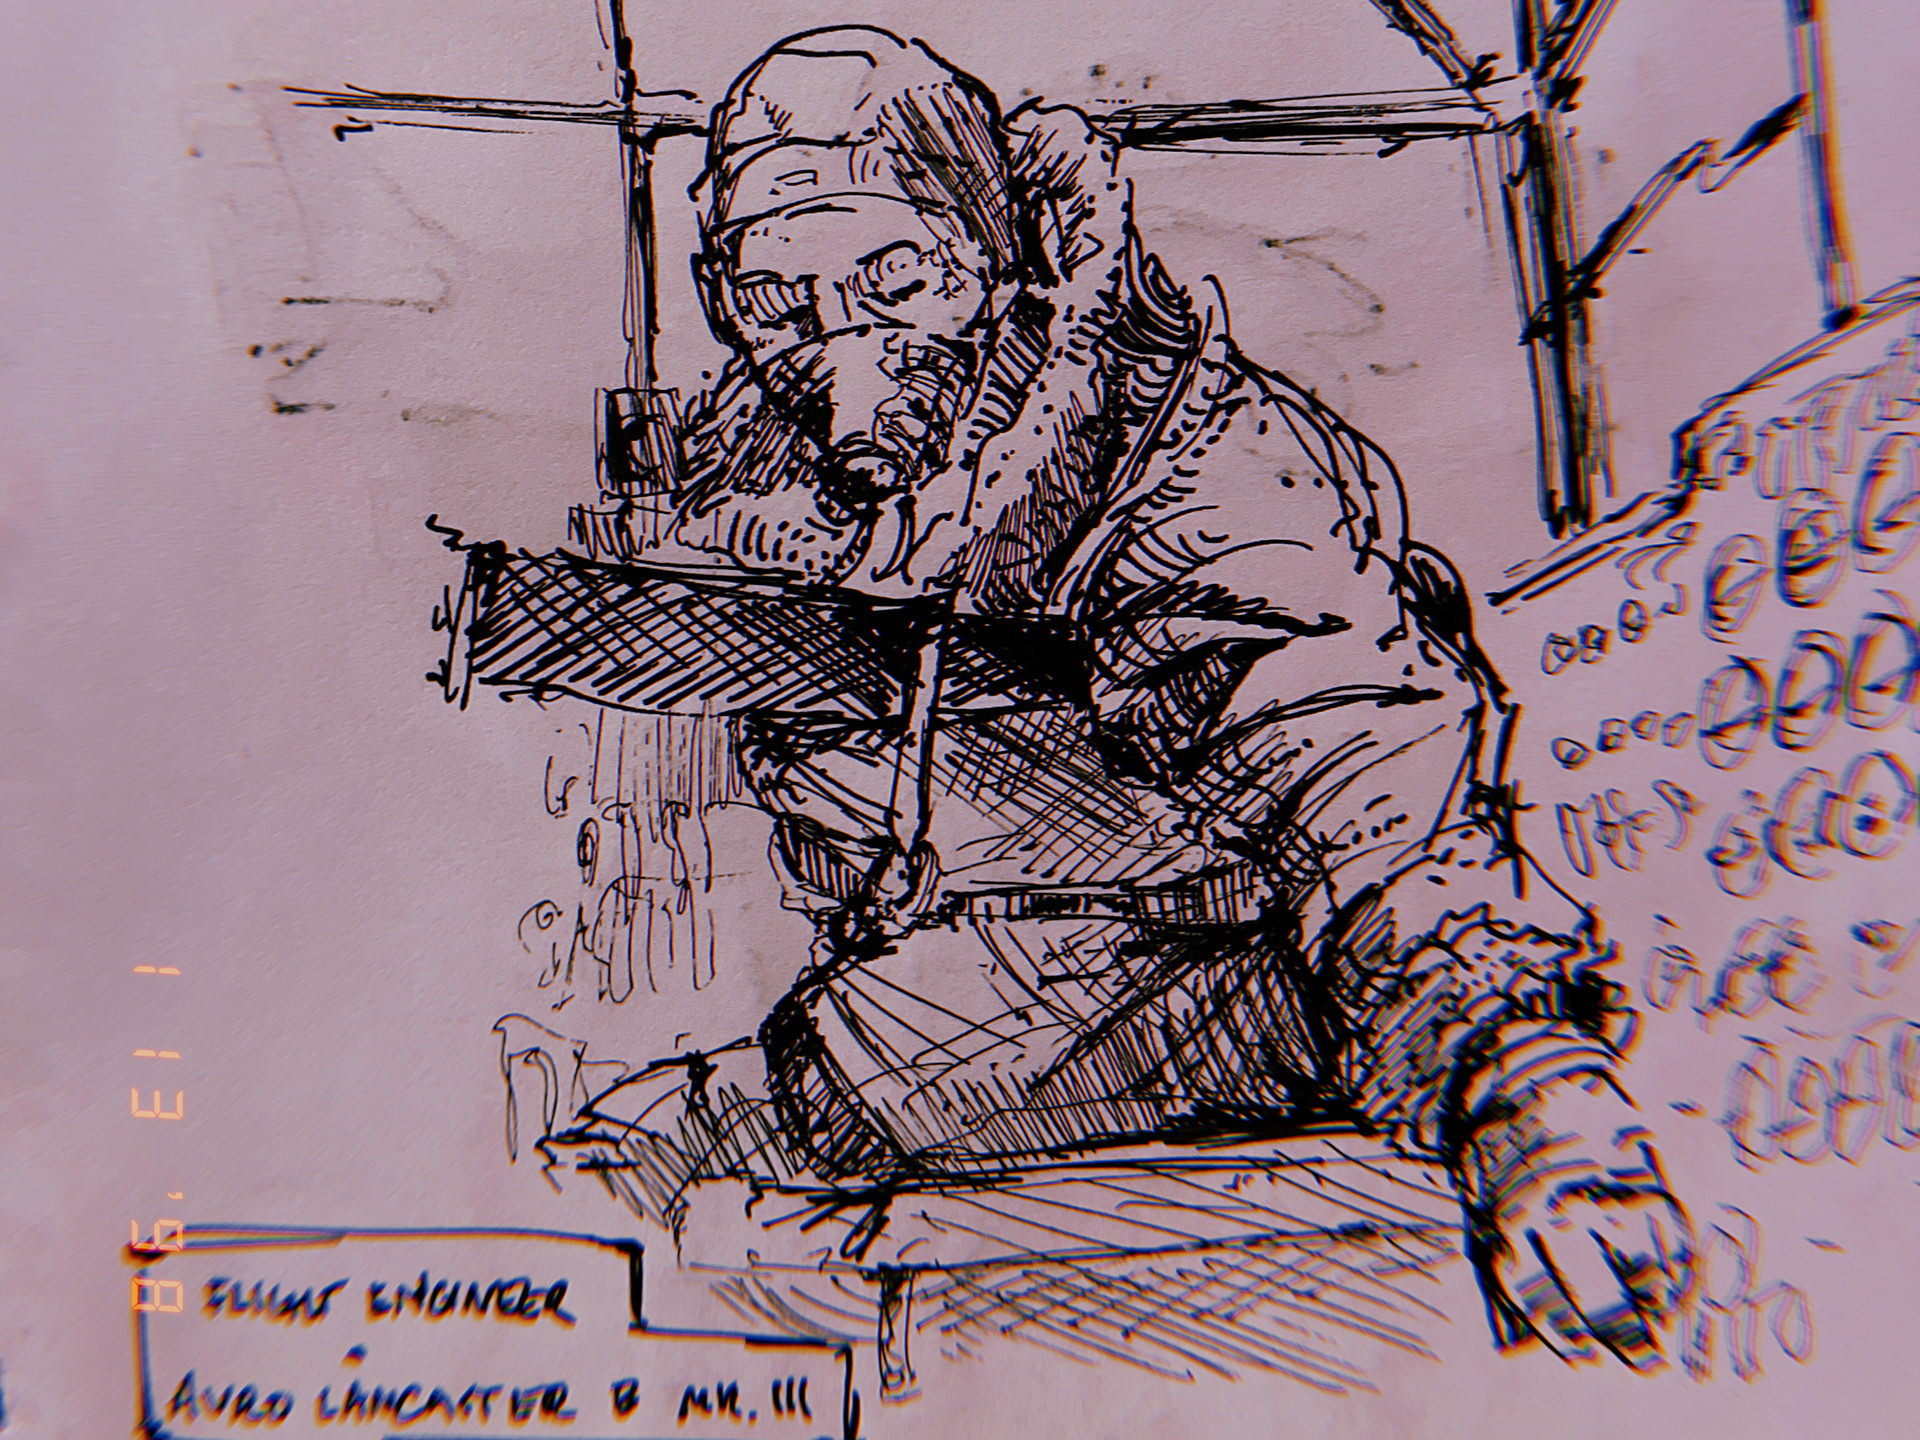 FLIGHT ENGINEER
AVRO LANCASTER B MK. III
86. E11